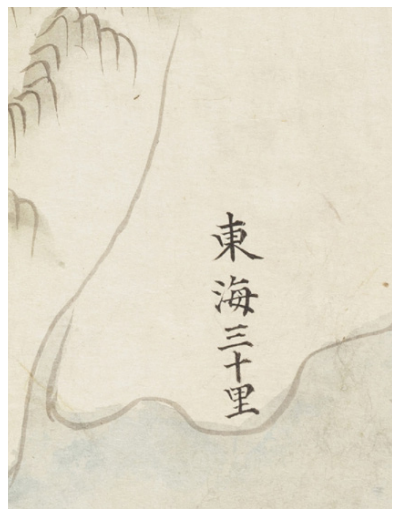 東海三十里